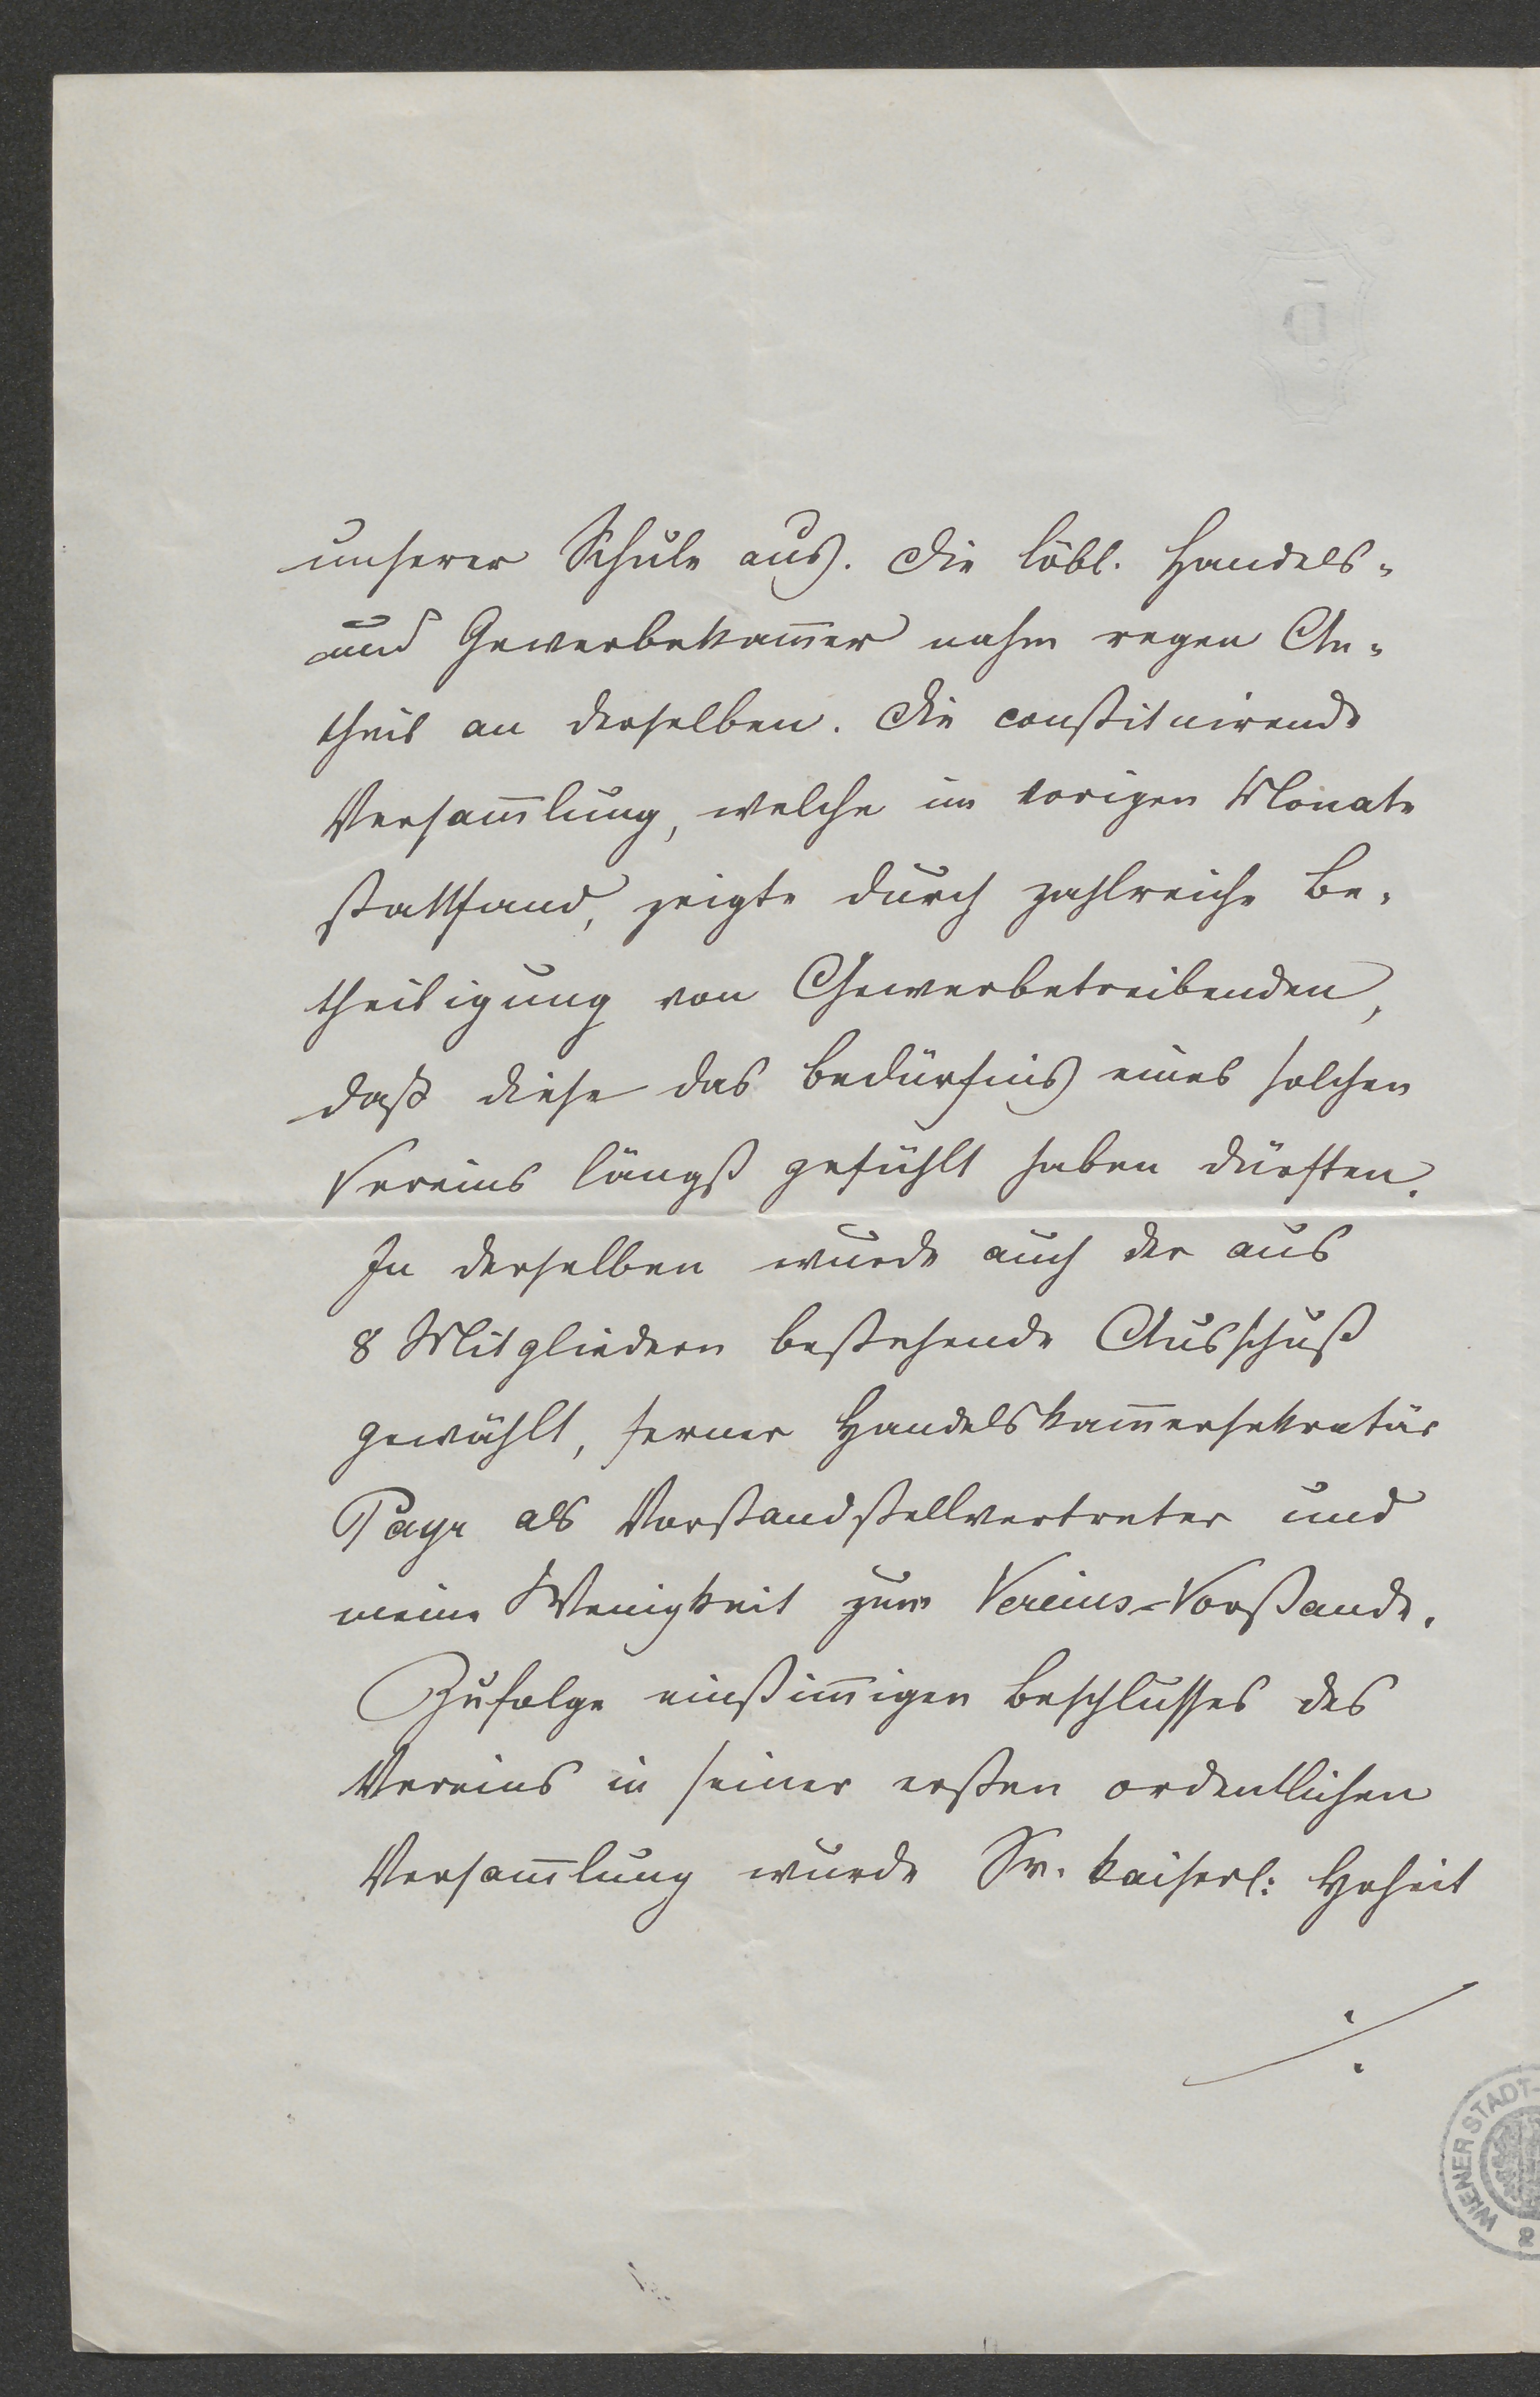 unserer Schule aus. Die löbl. Handels-
und Gewerbekam̅er nahm regen An-
theil an derselben. Die constituirende
Versam̅lung, welche im vorigen Monate
stattfand, zeigte durch zahlreiche Be-
theiligung von Gewerbetreibenden,
daß diese das Bedürfnis eines solchen
Vereins längst gefühlt haben dürften.
In derselben wurde auch der aus
8 Mitgliedern bestehende Ausschuß
gewählt, ferner Handelskam̅ersekretär
Payr als Vorstandstellvertreter und
meine Wenigkeit zum Vereins-Vorstande.
Zufolge einstim̅igen Beschlusses des
Vereins in seiner ersten ordentlichen
Versam̅lung wurde Sr. kaiserl: Hoheit
./.
WIENER STADT-